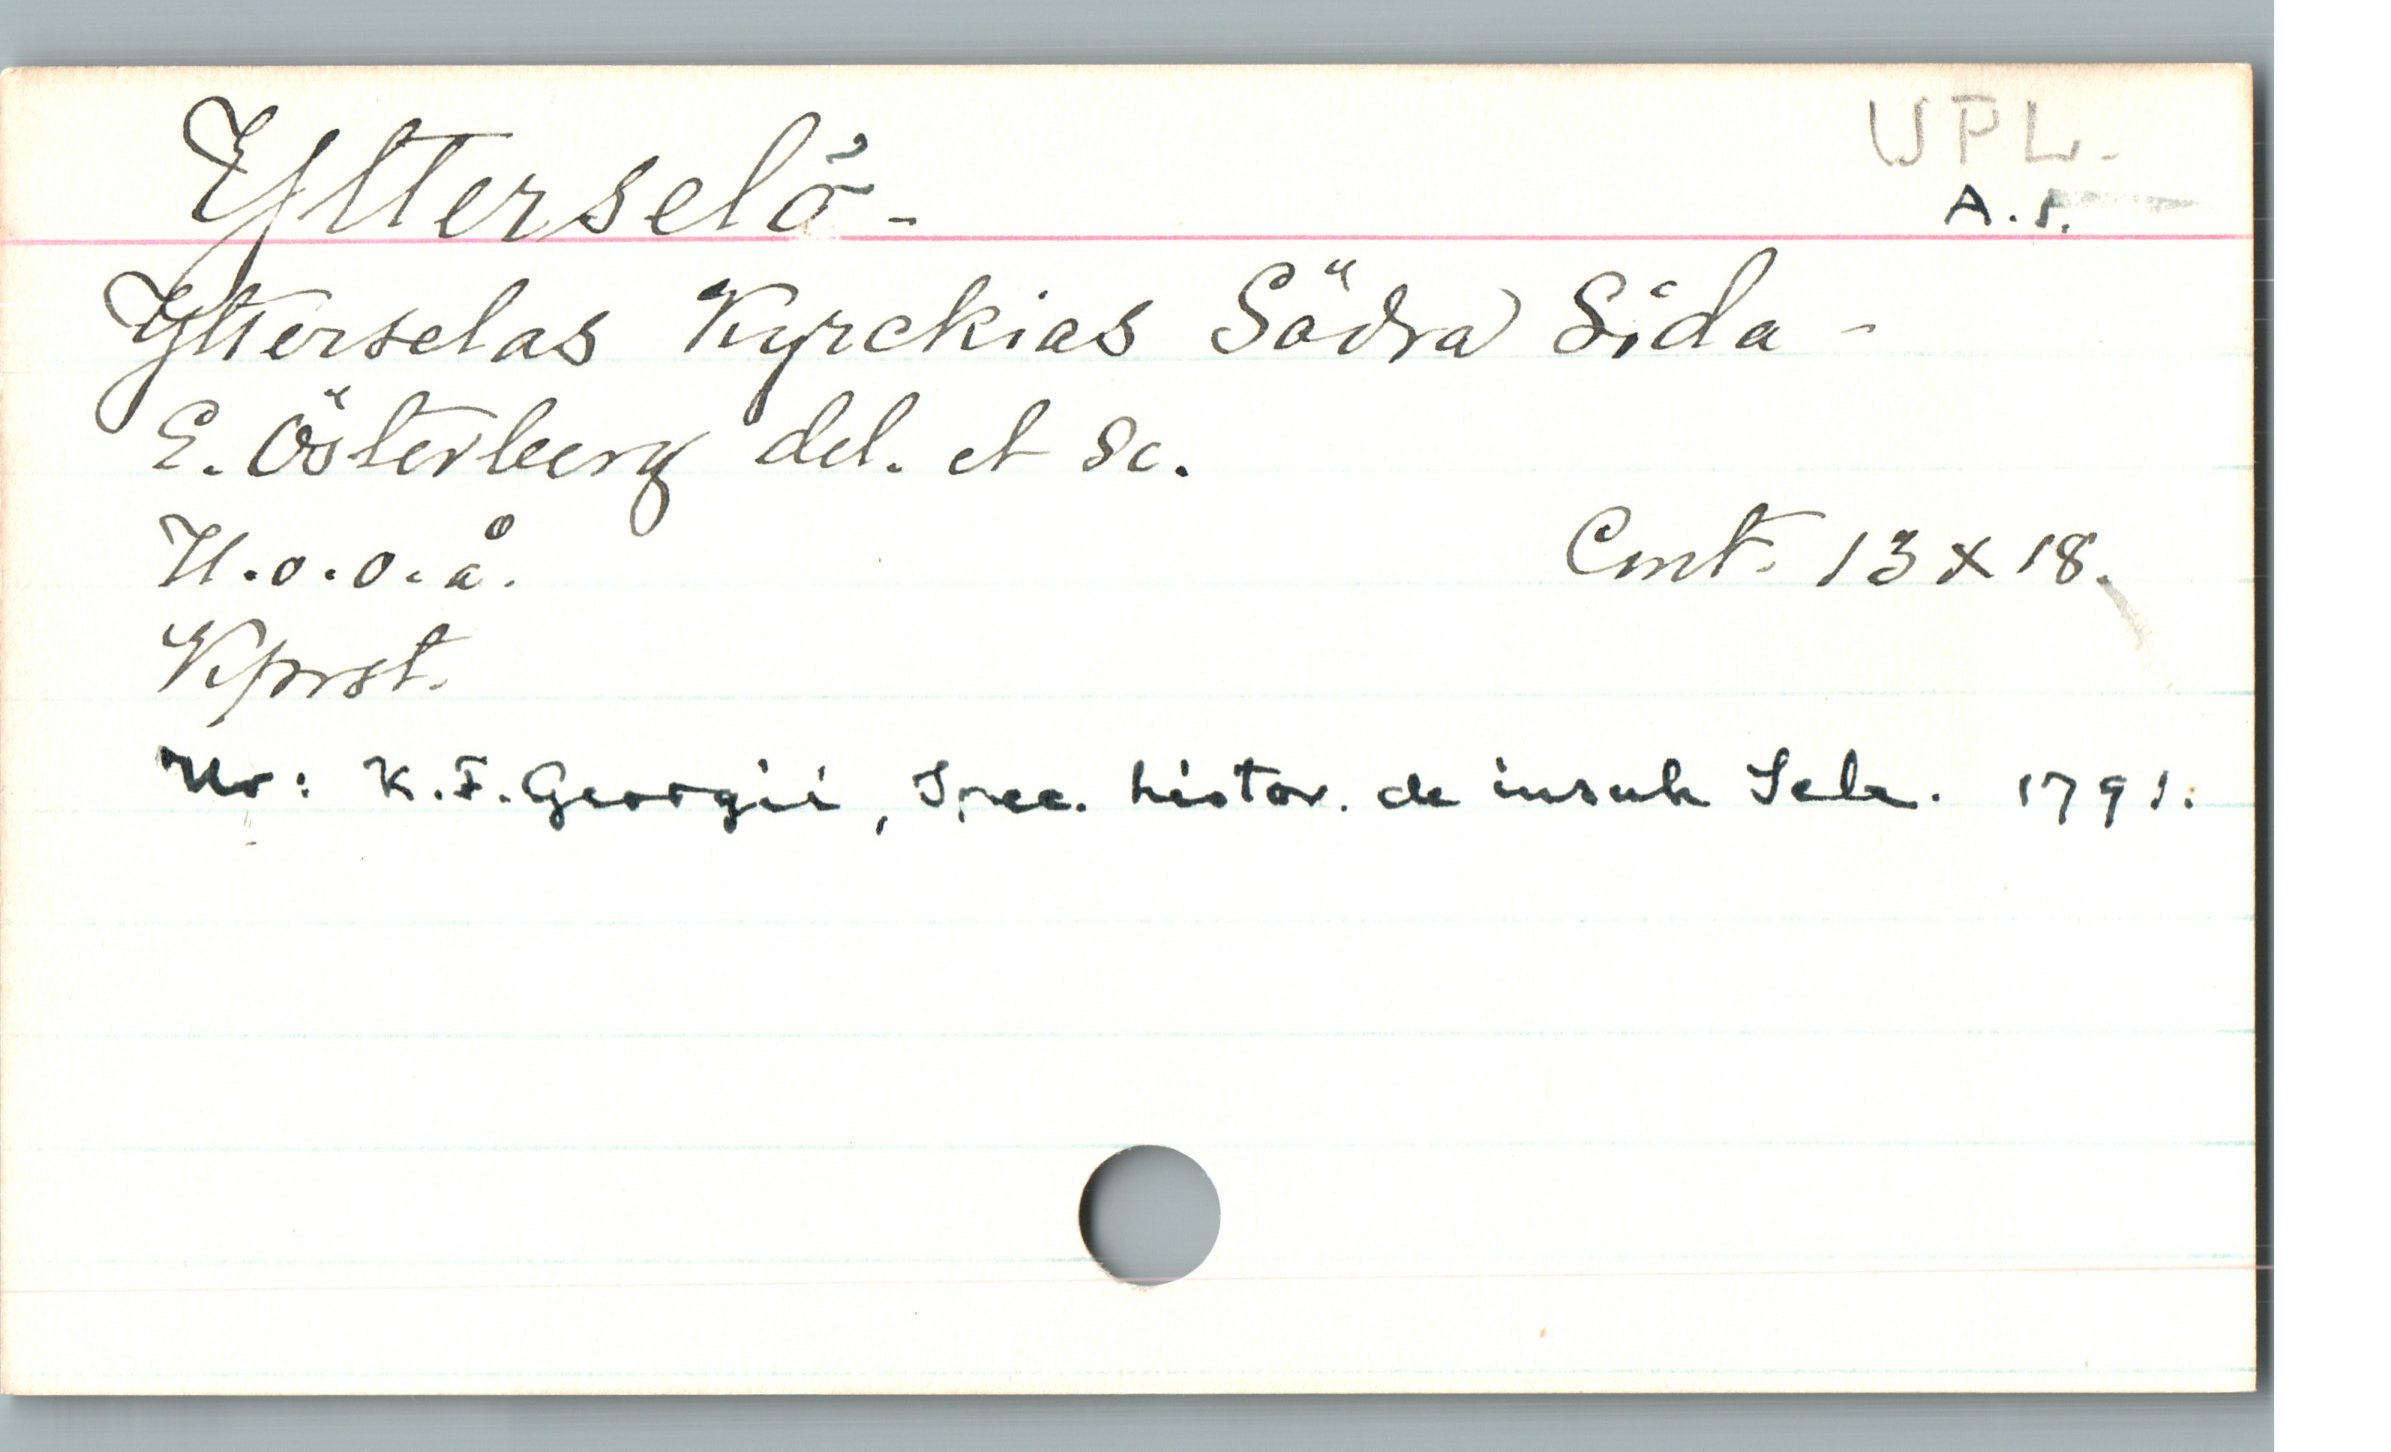 UPL.
Ytterselö-
A. S.
Ytterselas Kyrckias Södra Sida -
E. Österberg del. et sc.
U.o.o.å. Cmt. 13 x 18.
Kprst.
Ur: K.F. Georgii, Spec. histor. de insula Sela. 1791.